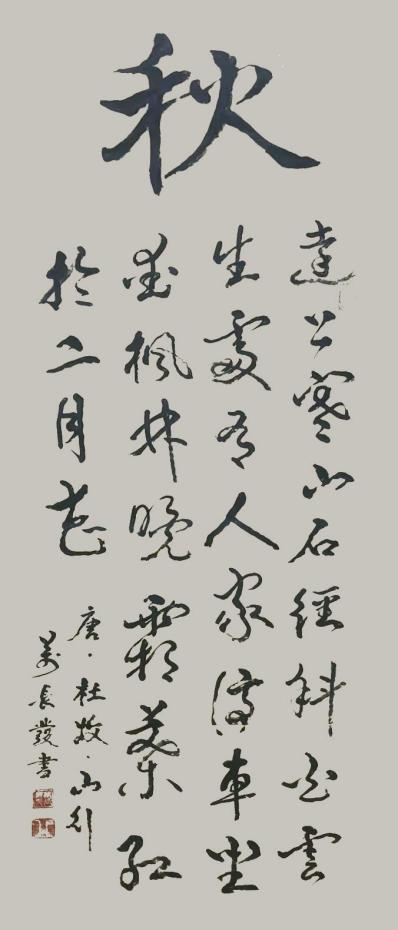 秋
遠上寒山石徑斜白雲
生處有人家停車坐
愛楓林晚霜葉紅
於二月花
唐·杜牧·山行
萬長發書